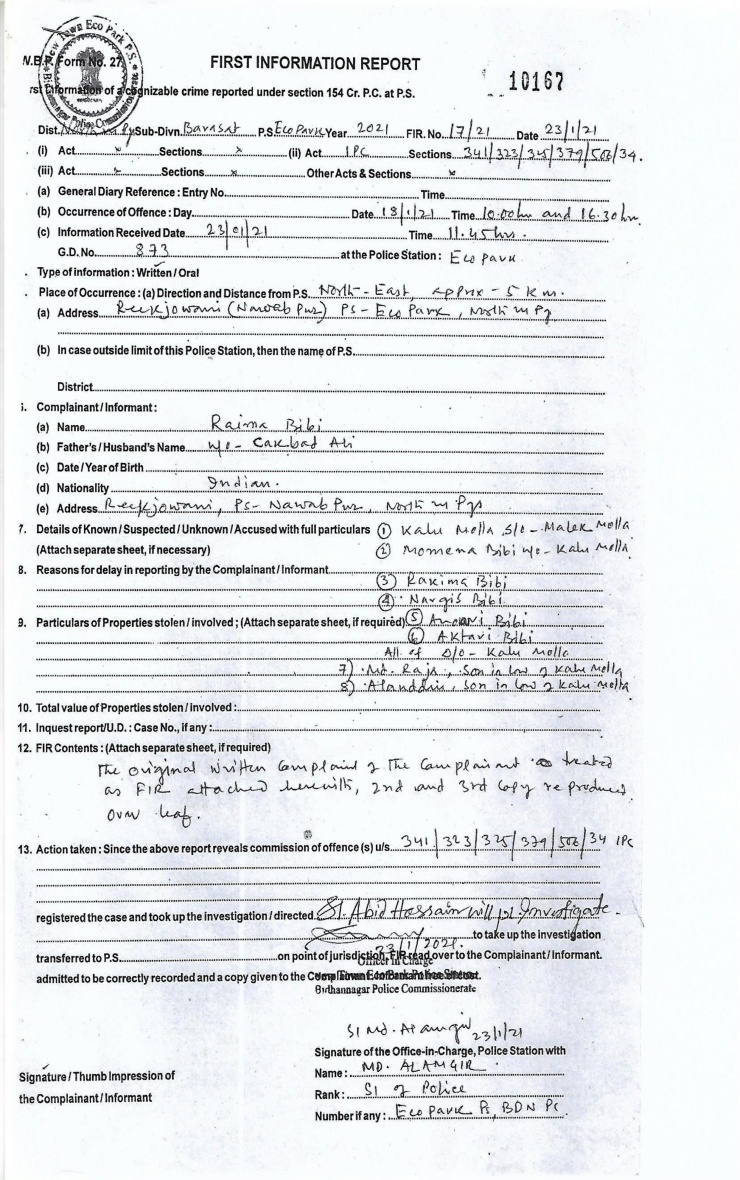 New Town Eco Park P.S.
Bidhannagar Police Commissionerate
W.B.P. Form No. 27
FIRST INFORMATION REPORT
10167
First Information of a cognizable crime reported under section 154 Cr. P.C. at P.S.
Dist. Sub-Divn. Barasat P.S Eco Park Year 2021 FIR. No. 17/21 Date 23/1/21
(i) Act x Sections x (ii) Act IPC Sections 341/323/325/379/506/34.
(iii) Act x Sections x Other Acts & Sections x
(a) General Diary Reference : Entry No. Time
(b) Occurrence of Offence : Day Date 18/1/21 Time 10:00 hr and 16.30 hr
(c) Information Received Date 23/01/21 Time 11.45 hrs.
G.D. No. 873 at the Police Station : Eco park
Type of information : Written / Oral
Place of Occurrence : (a) Direction and Distance from P.S. North - East apprix - 5 km.
(a) Address Reekjowani (Nawab Pur) PS - Eco Park, North
(b) In case outside limit of this Police Station, then the name of P.S.
District
i. Complainant / Informant :
(a) Name Raima Bibi
(b) Father's / Husband's Name w/o - Ali
(c) Date / Year of Birth
(d) Nationality Indian.
(e) Address Reekjowani, Ps - Nawab Pur, North
7. Details of Known / Suspected / Unknown / Accused with full particulars (1) Kalu Molla S/o - Malek Molla
(Attach separate sheet, if necessary) (2) Momena Bibi w/o - Kalu Molla
8. Reasons for delay in reporting by the Complainant / Informant
(3) Rakima Bibi
(4) Nargis Bibi
9. Particulars of Properties stolen / involved ; (Attach separate sheet, if required) (5) Bibi
(6) Aktari Bibi
All of D/o - Kalu Molla
7) Md. Raja, Son in low of Kalu Molla
8) Son in low of Kalu Molla
10. Total value of Properties stolen / involved :
11. Inquest report / U.D. : Case No., if any :
12. FIR Contents : (Attach separate sheet, if required)
The original written complaint of the complainant treated
as FIR attached herewith, 2nd and 3rd copy reproduced
over leaf.
13. Action taken : Since the above report reveals commission of offence (s) u/s. 341/323/325/379/506/34 IPC
registered the case and took up the investigation / directed SI. Abid Hossain will pl. Investigate.
to take up the investigation
23/1/2021.
transferred to P.S. on point of jurisdiction. FIR read over to the Complainant / Informant.
Officer in Charge
admitted to be correctly recorded and a copy given to the
Bidhannagar Police Commissionerate
SI Md. Alamgir 23/1/21
Signature of the Office-in-Charge, Police Station with
Name : MD. ALAMGIR
Rank : SI of Police
Number if any : Eco Park Ps, BDN PC
Signature / Thumb Impression of
the Complainant / Informant